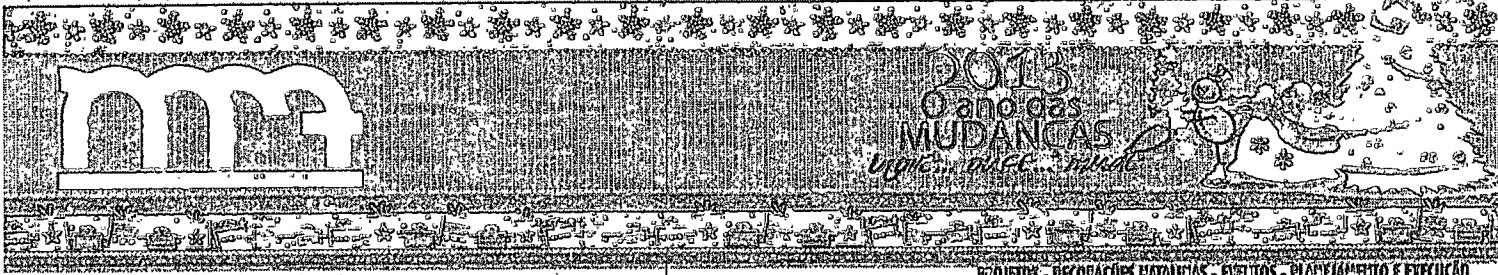 mf
2013
O ano das
MUDANÇAS
PROJETOS - DECORAÇÕES NATALINAS - EVENTOS - PLANEJAMENTO E EXECUÇÃO